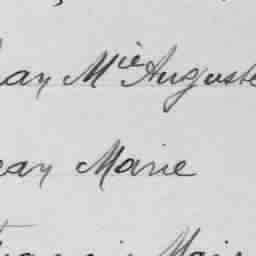 ean Mie Auguste
ean Marie